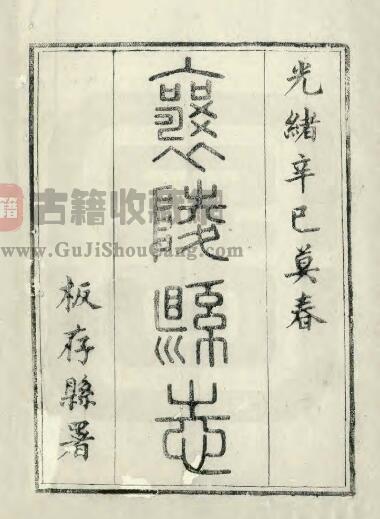 光緒辛巳莫春
襄陵縣志
板存縣署
籍 古籍收藏
www.GuJiShouCang.com